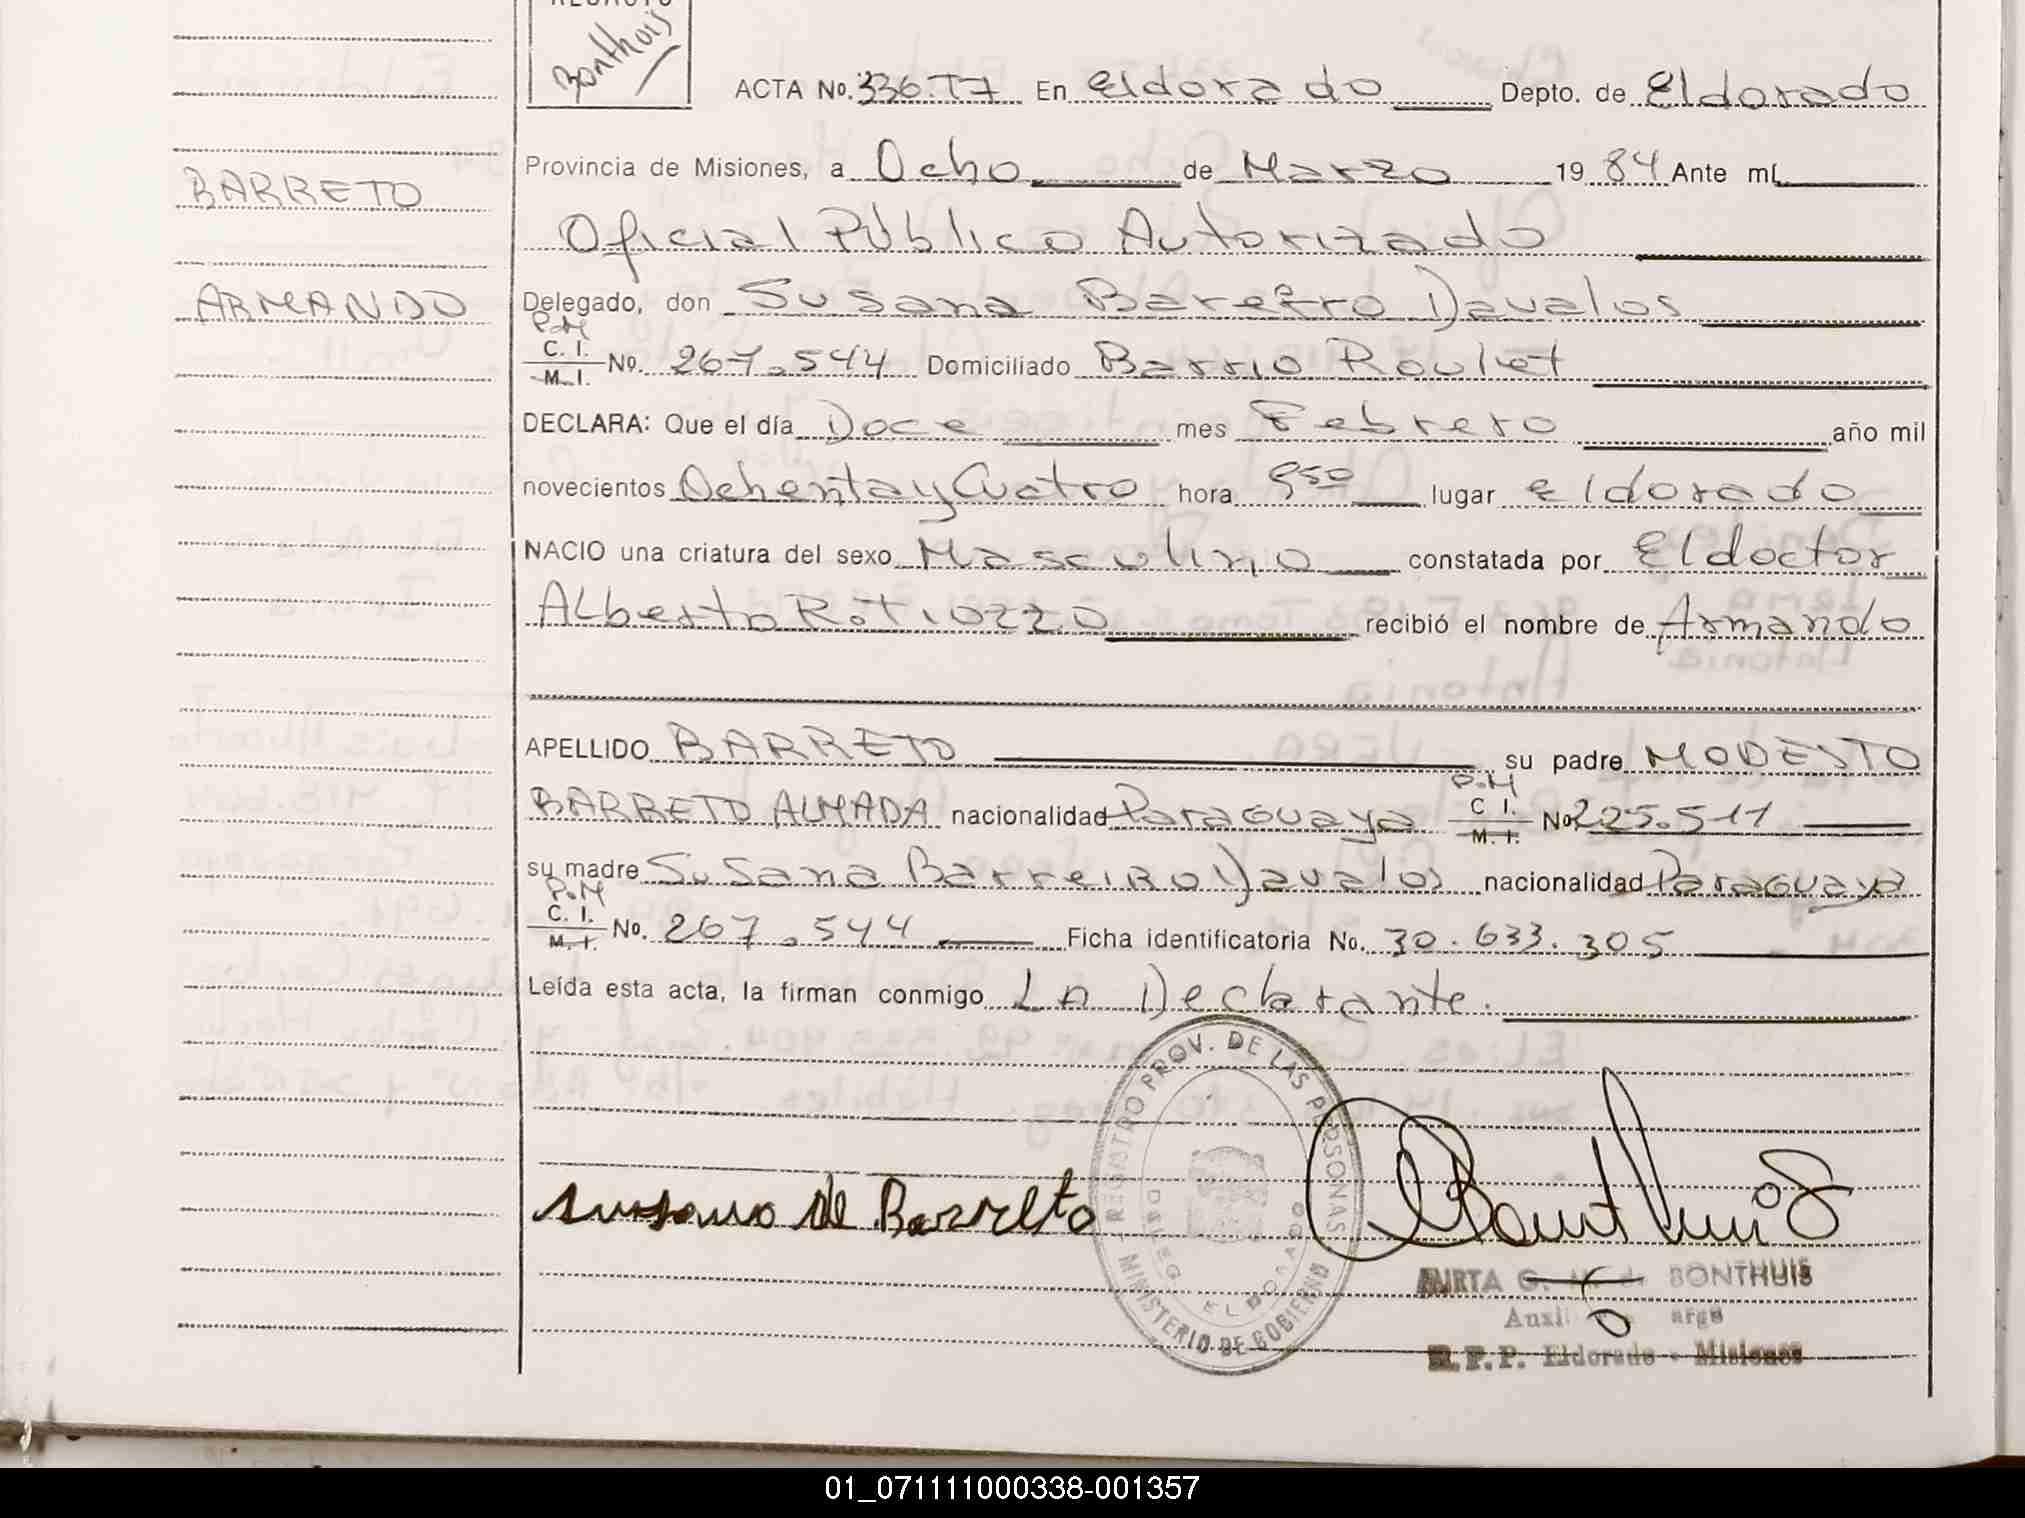 REDACTO
Bonthuis
ACTA No. 336.T7 En Eldorado Depto. de Eldorado
BARRETO
Provincia de Misiones, a Ocho de Marzo 19 84 Ante mí,
Oficial Público Autorizado
ARMANDO
Delegado, don Susana Bareiro Davalos
P.M
C. I.
M. I. No. 267.544 Domiciliado Barrio Roulet
DECLARA: Que el día Doce mes Febrero año mil
novecientos Ochenta y Cuatro hora 950 lugar Eldorado
NACIO una criatura del sexo Masculino constatada por El doctor
Alberto R. Tiozzo recibió el nombre de Armando
APELLIDO BARRETO su padre MODESTO
BARRETO ALMADA nacionalidad Paraguaya P.M C. I. M. I. No. 225.511
su madre Susana Barreiro Davalos nacionalidad Paraguaya
P.M
C. I.
M. I. No. 267.544 Ficha identificatoria No. 30.633.305
Leída esta acta, la firman conmigo LA Declarante.
REGISTRO PROV. DE LAS PERSONAS
DELEG. ELDORADO
MINISTERIO DE GOBIERNO
Susana de Barreto
Bonthuis
MIRTA G. de BONTHUIS
R.P.P. Eldorado - Misiones
01_071111000338-001357